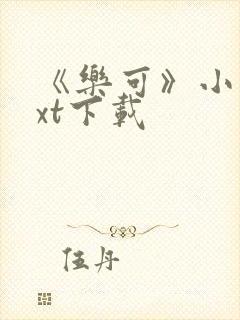 《樂可》小
xt下載
伍丹